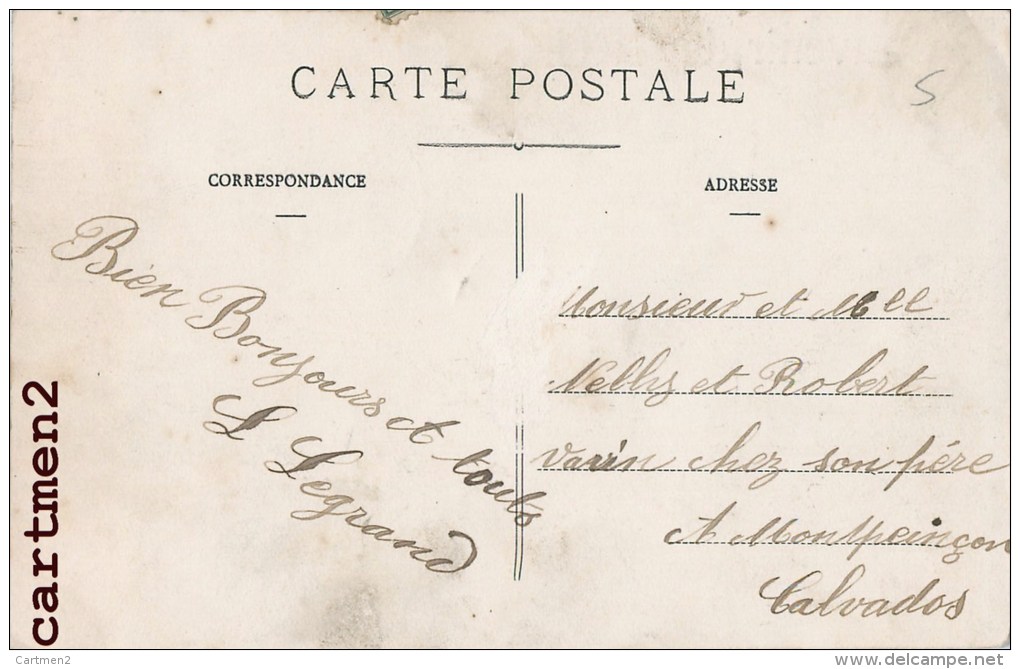 CARTE POSTALE
CORRESPONDANCE
Bien Bonjours et touts
L Legrand
ADRESSE
Monsieur et Mell
Nellys et Robert
Varin chez son père
A Montpeinçon
Calvados
S
cartmen2
Cartmen2
delcampe.net